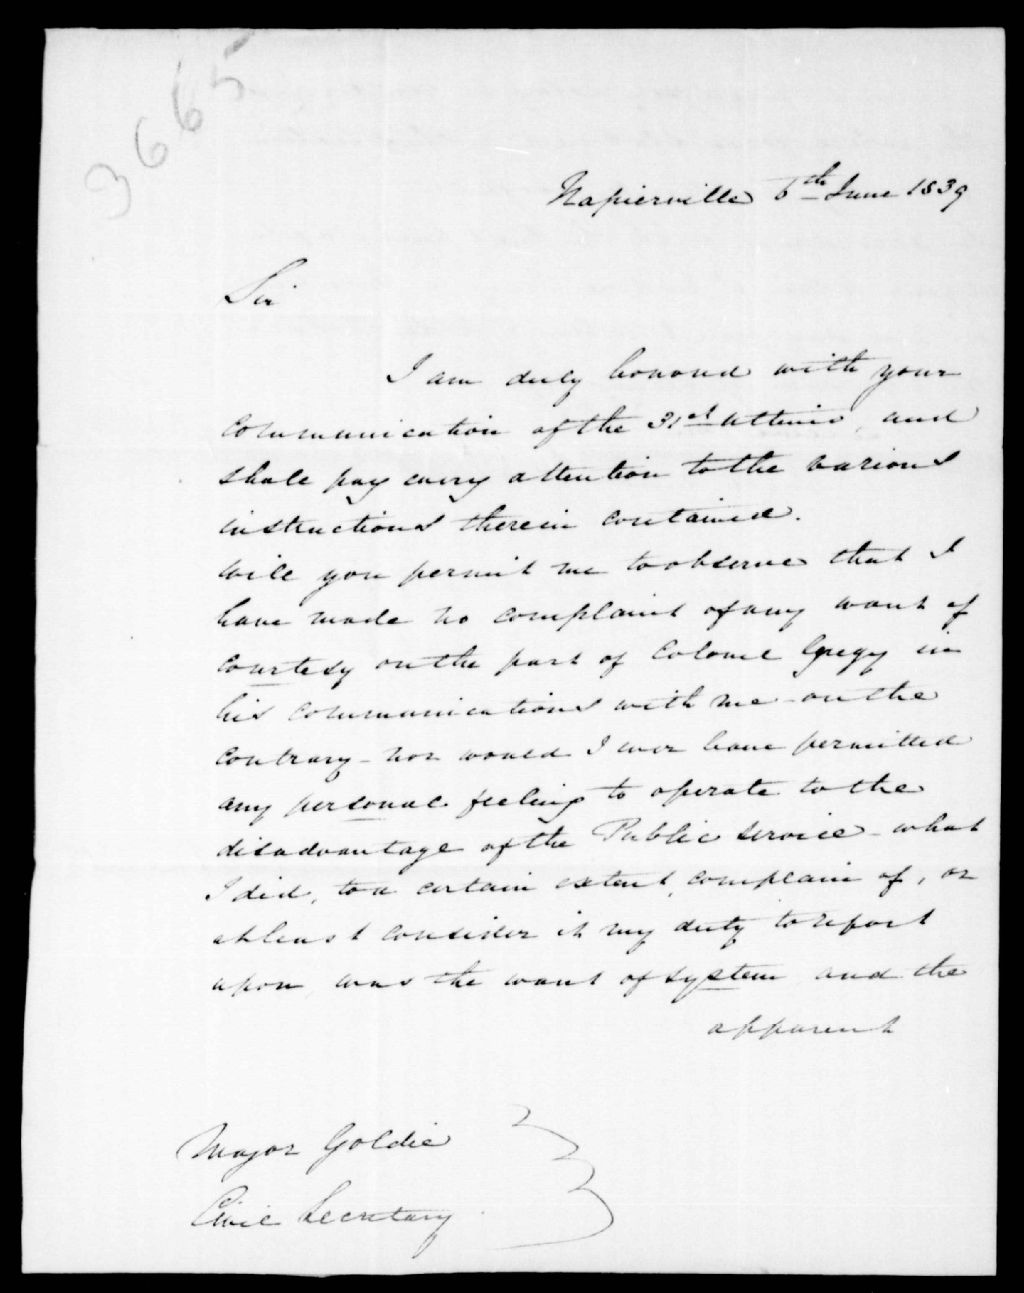 3665
Napierville 6th June 1839
Sir
I am duly honored with your
communication of the 31st ultimo, and
shall pay every attention to the various
instructions therein contained.
Will you permit me to observe that I
have made no complaint of any want of
courtesy on the part of Colonel Gregy in
his communications with me - on the
contrary - nor would I ever have permitted
any personal feeling to operate to the
disadvantage of the Public service - what
I did, to a certain extent, complain of, or
at least consider it my duty to report
upon, was the want of system and the
apparent
Major Goldie
Civil Secretary